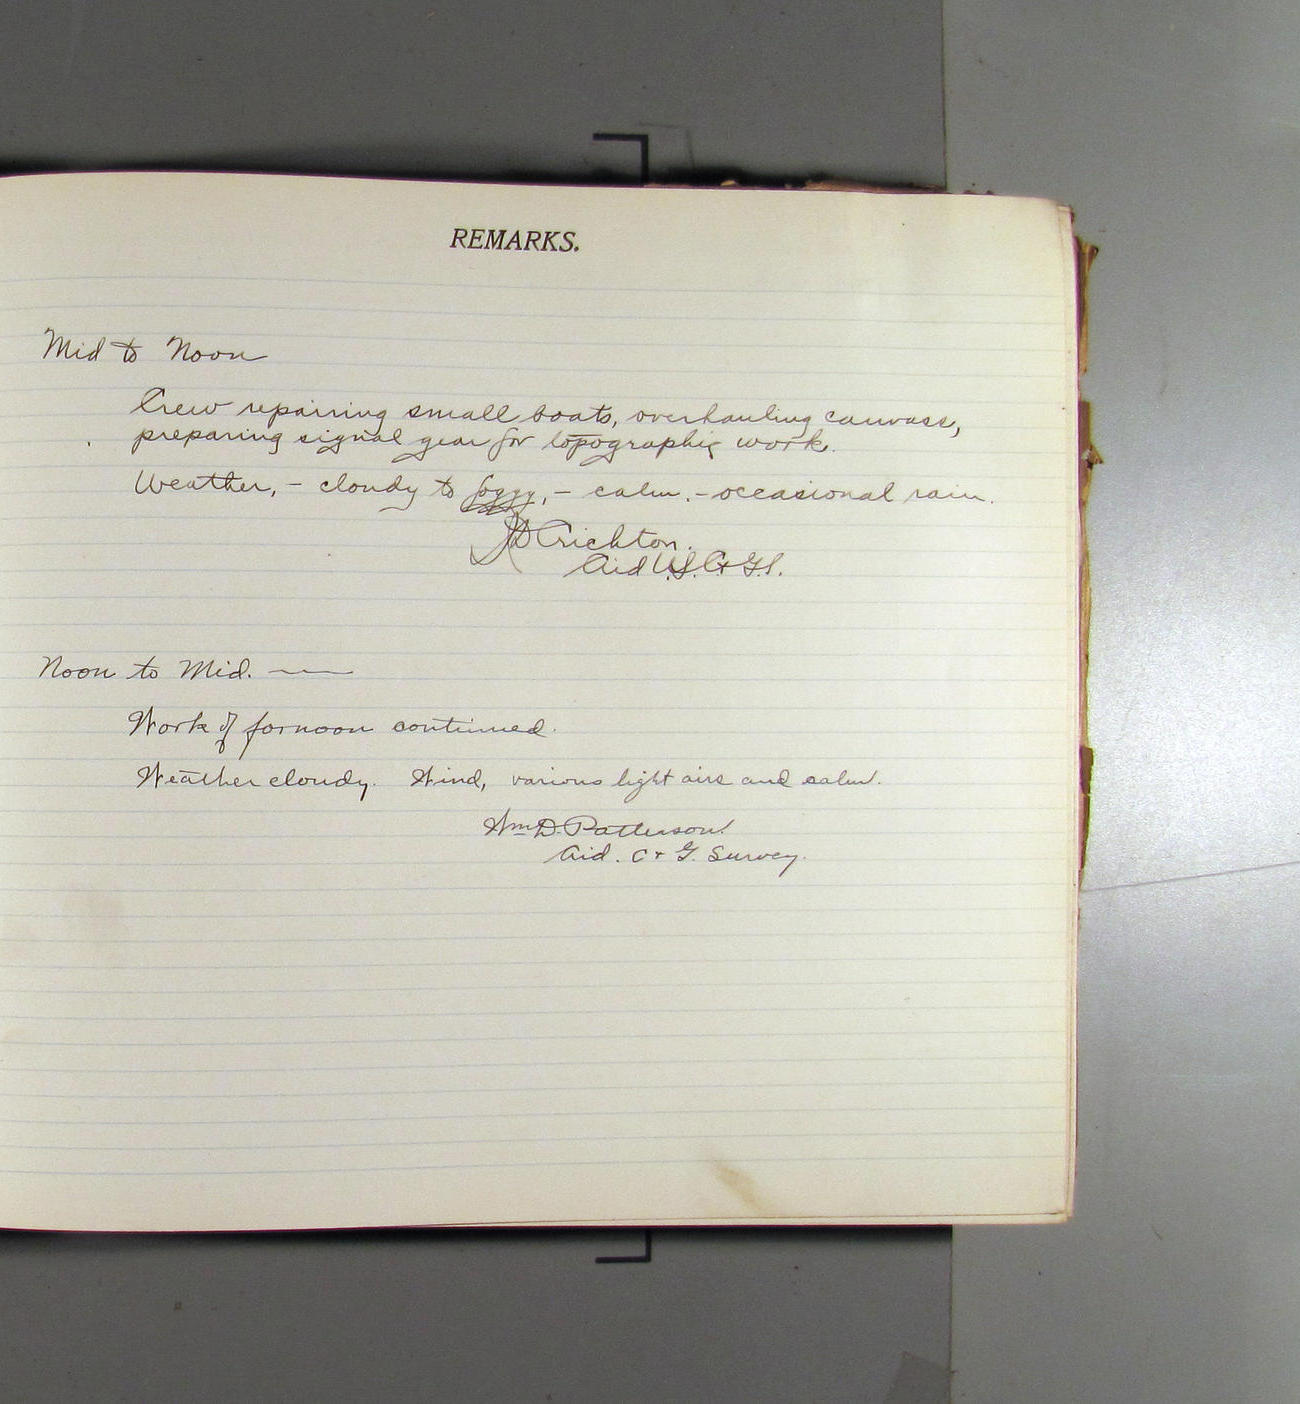 REMARKS.
Mid to Noon
Crew repairing small boats, overhauling canvass,
preparing signal gear for topographic work.
Weather, - cloudy to foggy, - calm. - occasional rain.
JD Crichton.
Aid U.S. C+G.S.
Noon to Mid. ——
Work of fornoon continued.
Weather cloudy. Wind, various light airs and calm.
Wm D. Patterson.
Aid. C + G. Survey.